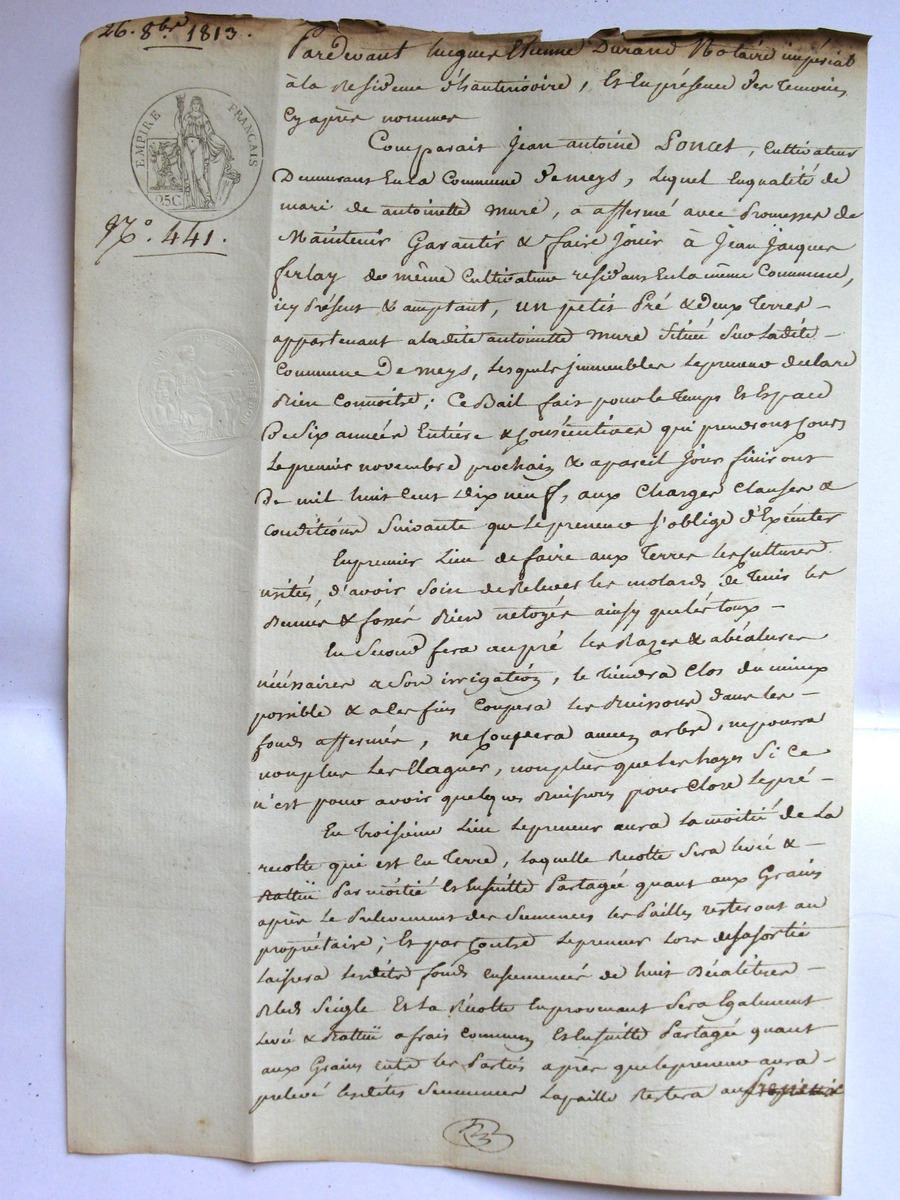 26. 8bre 1813.
EMPIRE FRANÇAIS
25C
No. 441.
Pardevant hugues Etienne Durand Notaire imperial
à la Residence d'hauterivoire, Et En présence des temoins
Cy après nommés
Comparait Jean antoine Poncet, Cultivateur
Demeurant En la Commune de meys, Lequel En qualité de
mari de antoinette mure, a affermé avec Promesses de
Maintenir Garantir & faire Jouir à Jean Jacques
ferlay de même Cultivateur residant En la même Commune,
icy Présent & acceptant, un petit Pré & deux Terres
appartenant a ladite antoinette mure Situés Sur Ladite
Commune De meys, Lesquels immeubles Le preneur declare
Bien Connoitre; Ce Bail fait pour le temps Et Espace
De Six années Entiere & Consécutives qui prendront Cours
Le premier novembre prochain & a pareil Jour finiront
De mil huit Cent Dix neuf, aux Charges Clauses &
Conditions Suivante que Le preneur s'oblige d'Exécuter
En premier Lieu de faire aux Terres Les Cultures
usitées, d'avoir Soin de Relever les molards de tenir les
& fossés Bien netoyés ainsy que Les
En Second fera au pré les Razes & abéalures
nécéssaires a Son irrigation, le tiendra Clos du mieux
possible & a Ces fins Coupera les Buissons dans les
fonds affermés, ne Coupera aucun arbre, ne pourra
non plus Les Elaguer, non plus que Les hayes Si Ce
n'est pour avoir quelques Buissons pour Clore Le pré
En Troisième Lieu Le preneur aura La moitié de La
recolte qui est En Terre, laquelle Recolte Sera levée &
Battue Par moitié Et Ensuitte Partagée quant aux Grains
après Le Prélevement des Semences les Pailles resteront au
propriétaire; Et par Contre Le preneur Lors de sa Sortie
Laissera Lesdits fonds Ensemencés de huit Décalitres
Bled Seigle Et La Récolte En provenant Sera Egalement
Levée & Battue a frais Communs Et Ensuitte Partagée quant
aux Grains Entre les Parties après que Le preneur aura
prelevé Lesdites Semences La paille Restera au